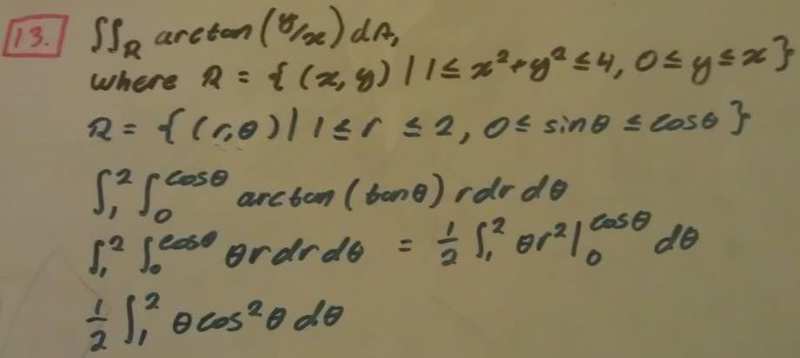 13. ∫∫_R arctan(y/x) dA,
where R = { (x, y) | 1 ≤ x² + y² ≤ 4, 0 ≤ y ≤ x }
R = { (r, θ) | 1 ≤ r ≤ 2, 0 ≤ sinθ ≤ cosθ }
∫₁² ∫₀^cosθ arctan(tanθ) r dr dθ
∫₁² ∫₀^cosθ θ r dr dθ = 1/2 ∫₁² θr² |₀^cosθ dθ
1/2 ∫₁² θ cos²θ dθ